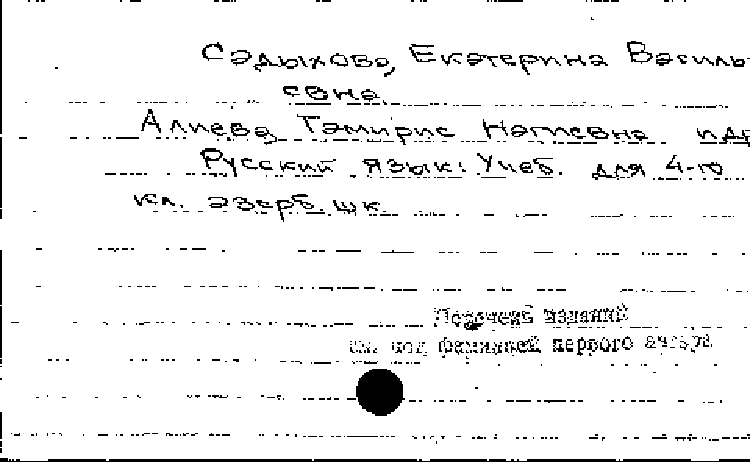 Садыхова, Екатерина Василь-
евна.
Алиева, Тамирис Нагиевна и др
Русский язык: Учеб. для 4-го
кл. азерб. шк.
Перечень изданий
см. под фамилией первого автора